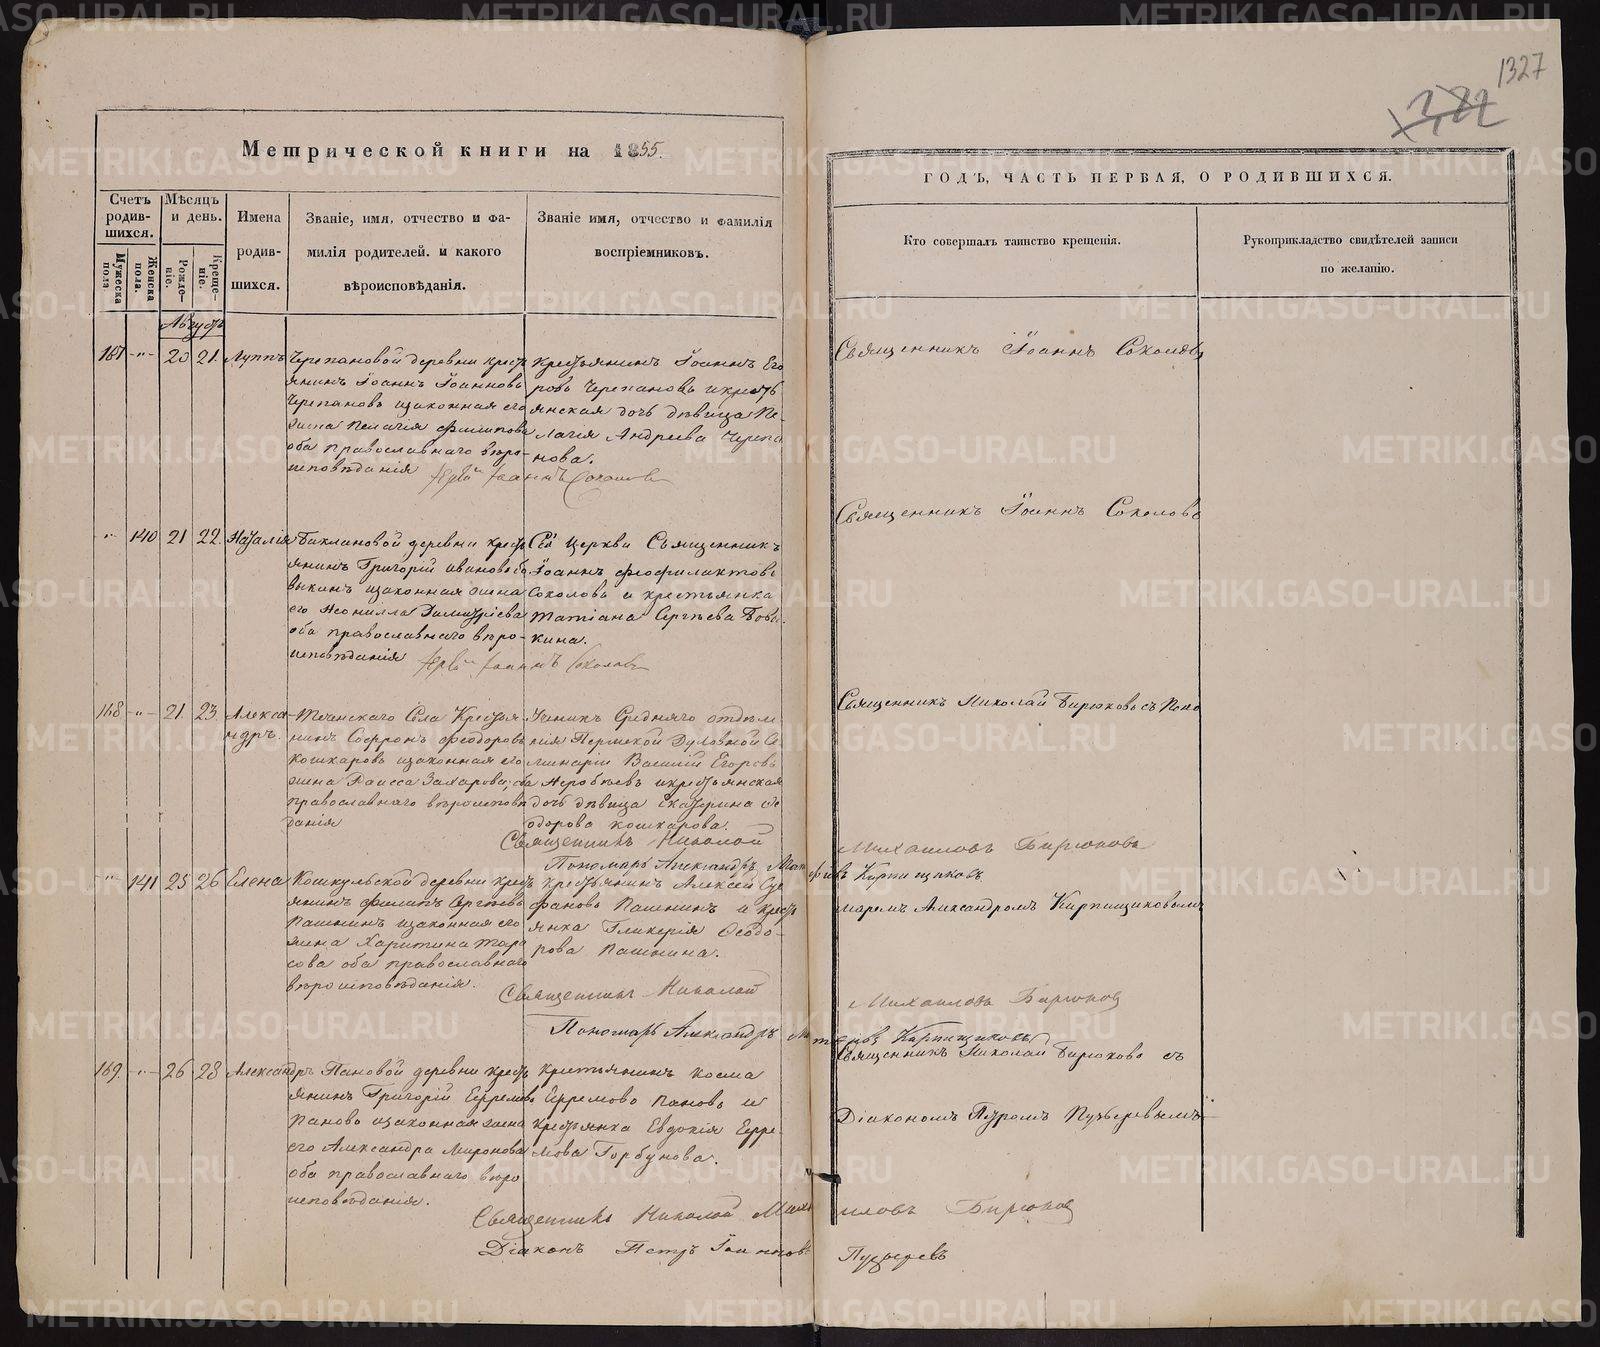 1327
Метрической книги на 1855.
годъ, часть первая, о родившихся.
Счетъ родив-шихся.
Мужеска пола
Женска пола.
Мѣсяцъ и день.
Рожде-ніе.
Креще-ніе.
Имена
родив-
шихся.
Званіе, имя, отчество и фа-
милія родителей. и какого
вѣроисповѣданія.
Званіе имя, отчество и фамилія
воспріемниковъ.
Кто совершалъ таинство крещенія.
Рукоприкладство свидѣтелей записи
по желанію.
Августъ
167 -"- 20 21. Луппъ
Черепановой деревни крест
янинъ Іоаннъ Іоанновъ
Черепановъ изаконная его
жена Пелагія Филипова
оба православнаго вѣро-
исповѣданія
Крестьянинъ Іоаннъ Его
ровъ Черепановъ икресть
янская дочь дѣвица Пе-
лагія Андреева Черепа
нова.
Іоаннъ Соколовъ
Священникъ Іоаннъ Соколовъ
" 140 21 22. Наталія
Баклановой деревни крест
янинъ Григорій Ивановъ Бо
выкинъ изаконная жена
его Неонилла Димитріева
оба православнаго вѣро-
исповѣданія
Сей Церкви Священникъ
Іоаннъ Феофилактовъ
Соколовъ и крестьянка
Татіана Сергѣева Бовы
кина.
Іоаннъ Соколовъ
Священникъ Іоаннъ Соколовъ
168 -"- 21. 23. Алекса-
ндръ.
Теченскаго Села Крестья
нинъ Софронъ Феодоровъ
Кошкаровъ изаконная его
жена Раисса Захарова, оба
православнаго вѣроисповѣ
данія
Ученикъ Средняго отдѣле
нія Пермской Духовной Се
минаріи Василій Егоровъ
икрестьянская
дочь дѣвица Екатерина Фе
одорова Кошкарова.
Священникъ Николай Михаиловъ Бирюковъ
Пономарь Александръ Матфіевъ Кирпищиковъ
Священникъ Николай Бирюковъ съ Поно
маремъ Александромъ Кирпищиковымъ
" 141 25 26 Елена
Кошкульской деревни крест
янинъ Филипъ Сергѣевъ
Пашнинъ изаконная его
жена Харитина Тара
сова оба православнаго
вѣроисповѣданія.
крестьянинъ Алексѣй Сте
фановъ Пашнинъ и крест
янка Гликерія Феодо-
рова Пашнина.
Священникъ Николай Михаиловъ Бирюковъ
Пономарь Александръ Матфіевъ Кирпищиковъ
169. -"- 26 28 Александръ
Пановой деревни крест
янинъ Григорій Ефремовъ
Пановъ изаконная жена
его Александра Миронова
оба православнаго вѣро
исповѣданія.
крестьянинъ Косма
Ефремовъ Пановъ и
крестьянка Евдокія Ефре-
мова Горбунова.
Священникъ Николай Бирюковъ съ
Діакономъ Петромъ Пузыревымъ
Священникъ Николай Михаиловъ Бирюковъ
Діаконъ Петръ Іоанновъ Пузыревъ
METRIKI.GASO-URAL.RU